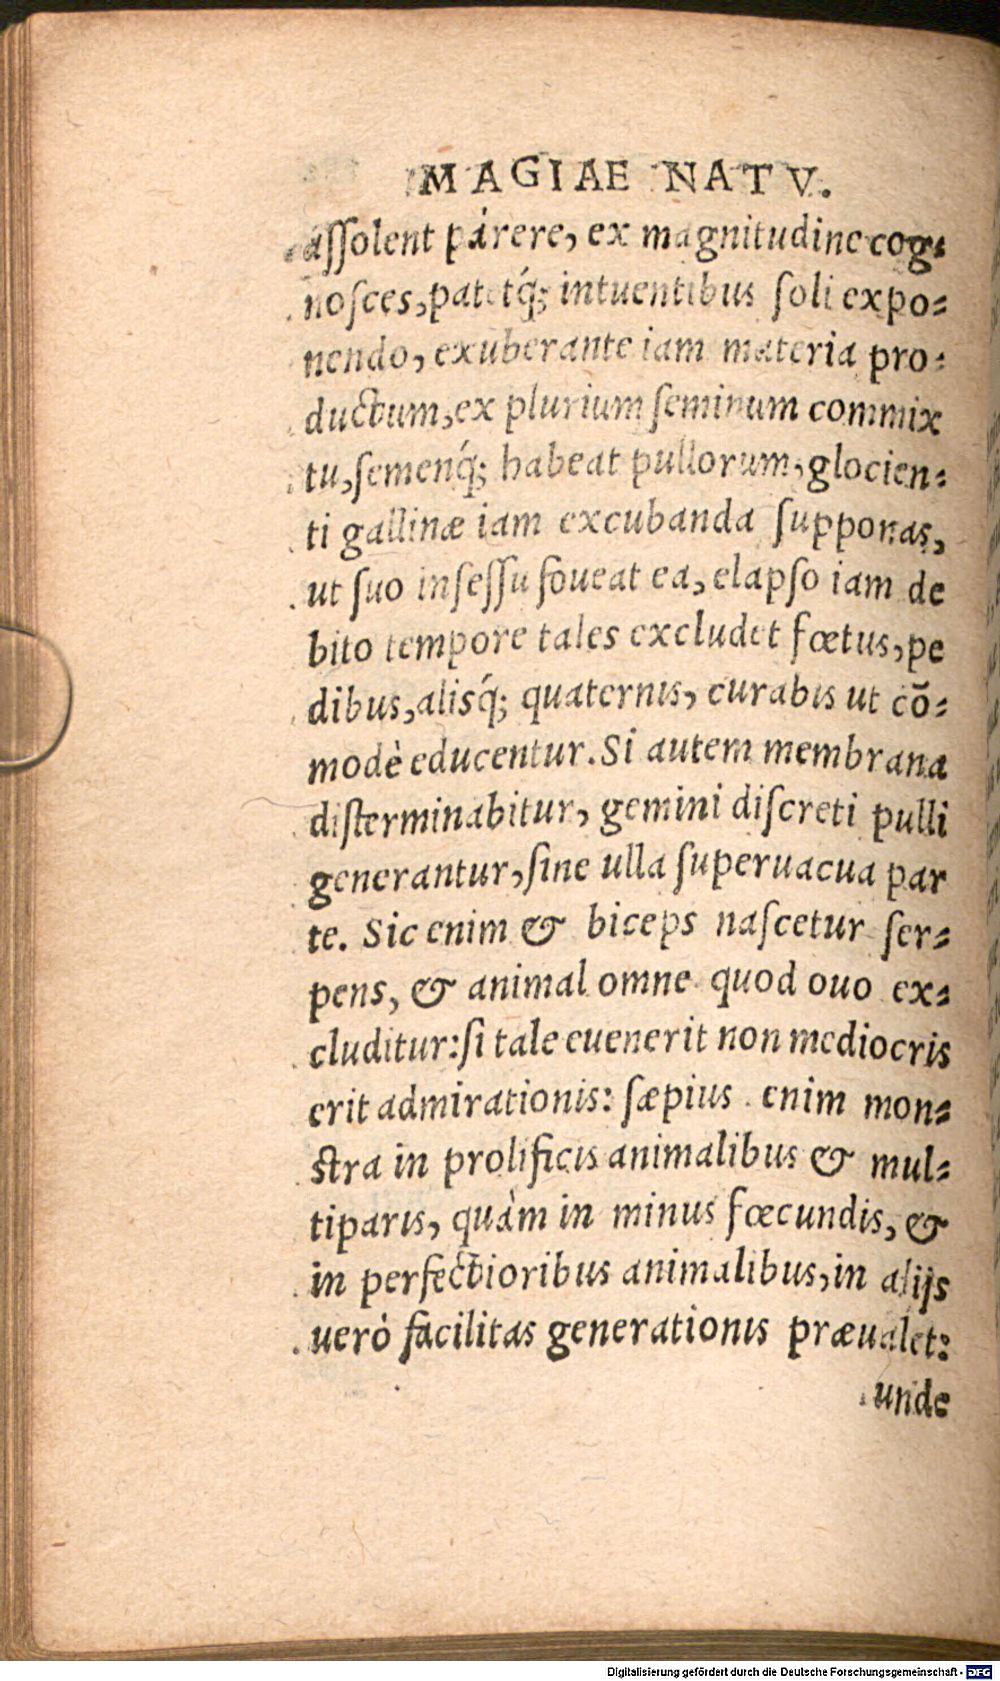 MAGIAE NATV.
aſſolent párere, ex magnitudine cog-
noſces, patetq́; intuentibus ſoli expo-
nendo, exuberante iam materia pro-
ductum, ex plurium ſeminum commix
tu, ſemenq́; habeat pullorum, glocien-
ti gallinæ iam excubanda ſupponas,
ut ſuo inſeſſu foueat ea, elapſo iam de
bito tempore tales excludet fœtus, pe
dibus, alisq́; quaternis, curabis ut cõ-
modè educentur. Si autem membrana
diſterminabitur, gemini diſcreti pulli
generantur, ſine ulla ſuperuacua par
te. Sic enim & biceps naſcetur ſer-
pens, & animal omne quod ouo ex-
cluditur: ſi tale euenerit non mediocris
erit admirationis: ſæpius enim mon-
ſtra in prolificis animalibus & mul-
tiparis, quàm in minus fœcundis, &
in perfectioribus animalibus, in alijs
uerò facilitas generationis præualet:
unde
Digitalisierung gefördert durch die Deutsche Forschungsgemeinschaft - DFG